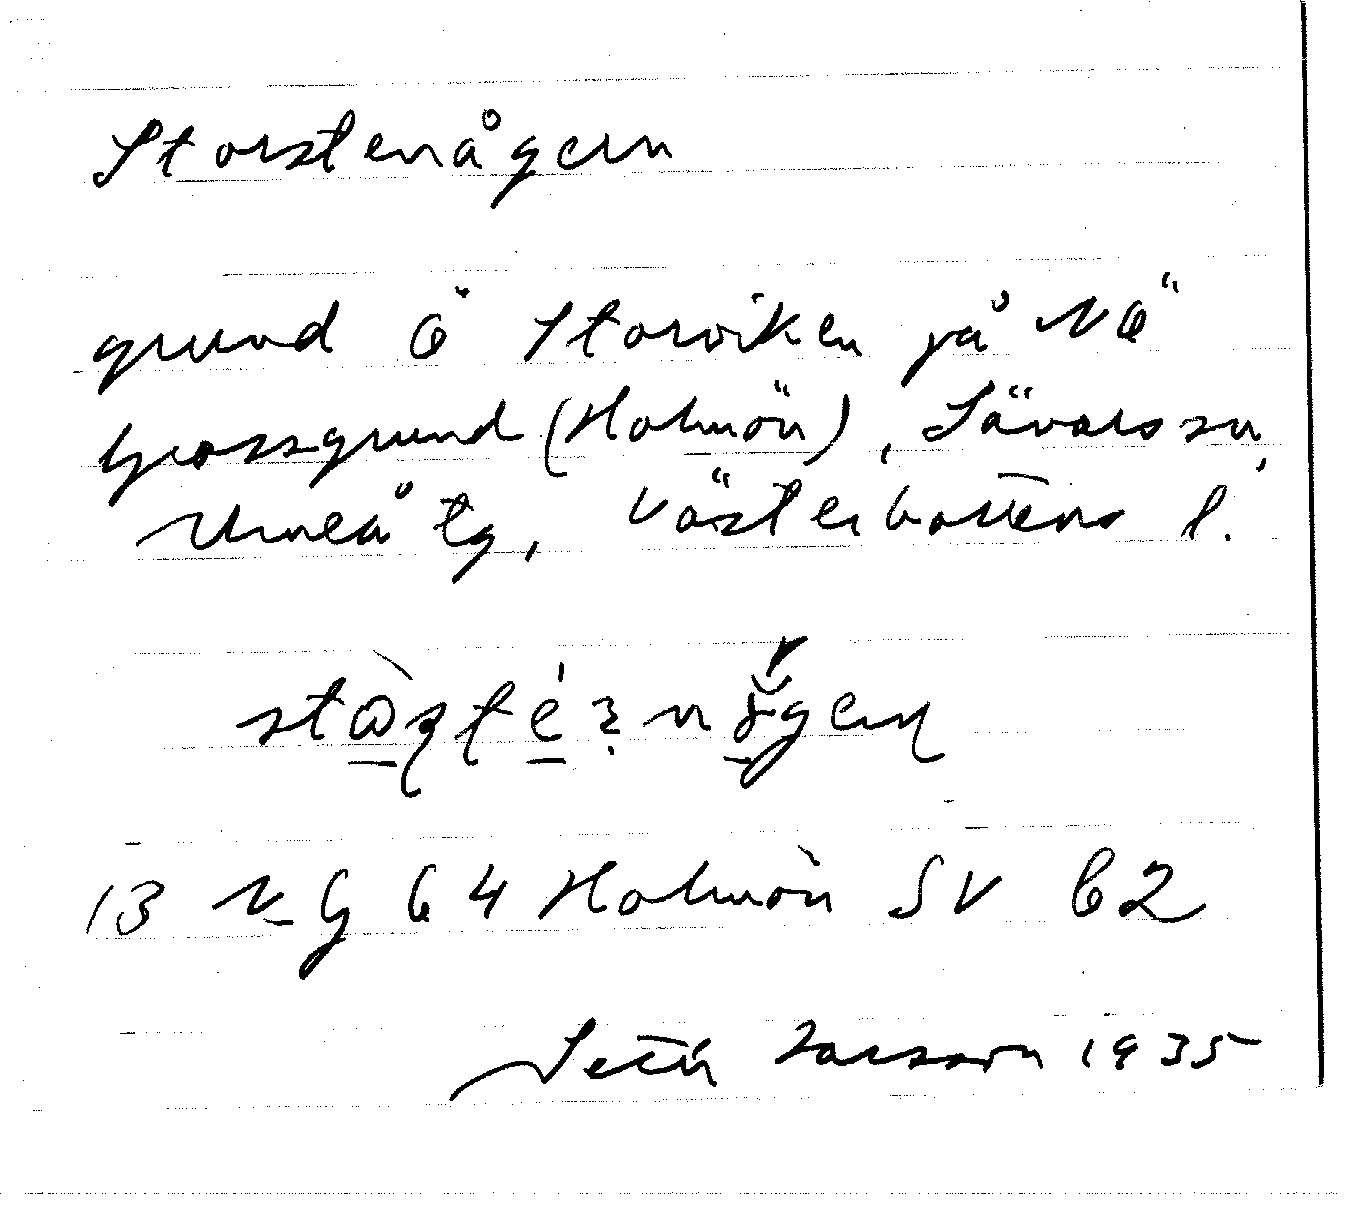 Storstenågern
grund Ö Storviken på NÖ
grossgrund (Holmön), Sävars sn,
Umeå tg, Västerbottens l.
13 N G 64 Holmön SV 62
Setn Larsson 1935